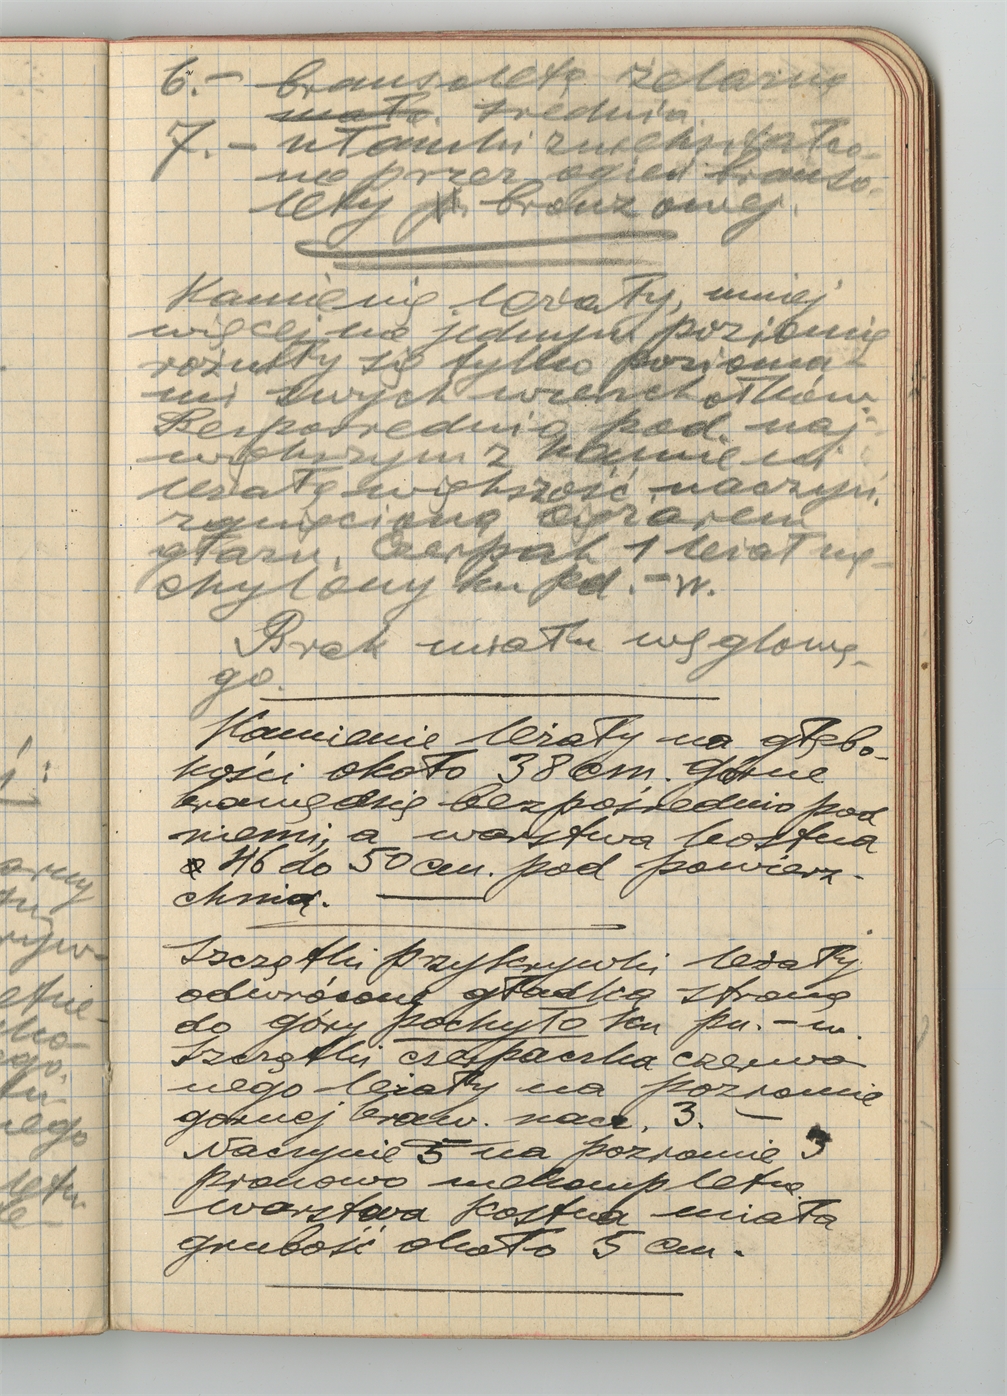 6.- bransoletę żelazną
mała. średnia.
7.- ułamki zniekształco-
ne przez ogień branso-
lety brązowej.
Kamienie leżały, mniej
więcej na jednym poziomie
różniły się tylko pozioma-
mi swych wierzchołków.
Bezpośrednio pod naj-
większym z kamieni
leżała większość naczyń,
zgnieciona ciężarem
głazu. Czerpak 1 leżał na-
chylony ku pd.-w.
Brak miału węglowe-
go.
Kamienie leżały na głębo-
kości około 38 cm. górne
krawędzie bezpośrednio pod
niemi, a warstwa kostna
46 do 50 cm. pod powierz-
chnią.
Szczątki przykrywki leżały
odwrócone gładką stroną
do góry pochyło ku pn.-w.
Szczątki czerpaczka czerwo-
nego leżały na poziomie
górnej kraw. nacz. 3. —
Naczynie 5 na poziomie 3
pionowo niekompletne
warstwa kostna miała
grubość około 5 cm.